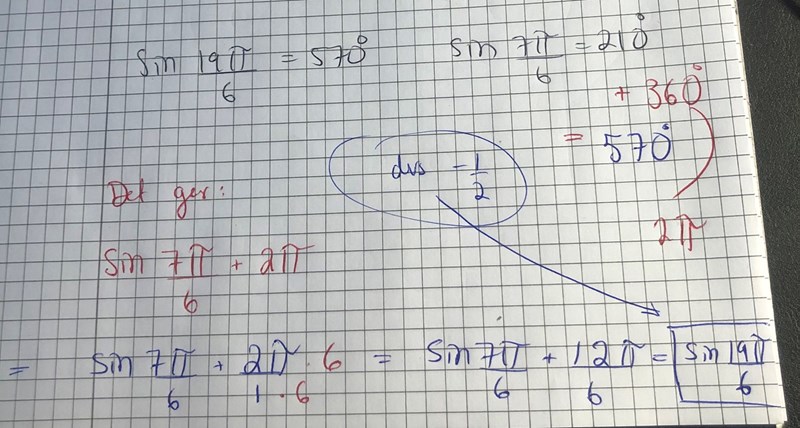 sin 19π/6 = 570°
sin 7π/6 = 210°
+ 360°
= 570°
2π
dvs -1/2
Det ger:
sin 7π/6 + 2π
= sin 7π/6 + 2π·6/1·6 = sin 7π/6 + 12π/6 = sin 19π/6